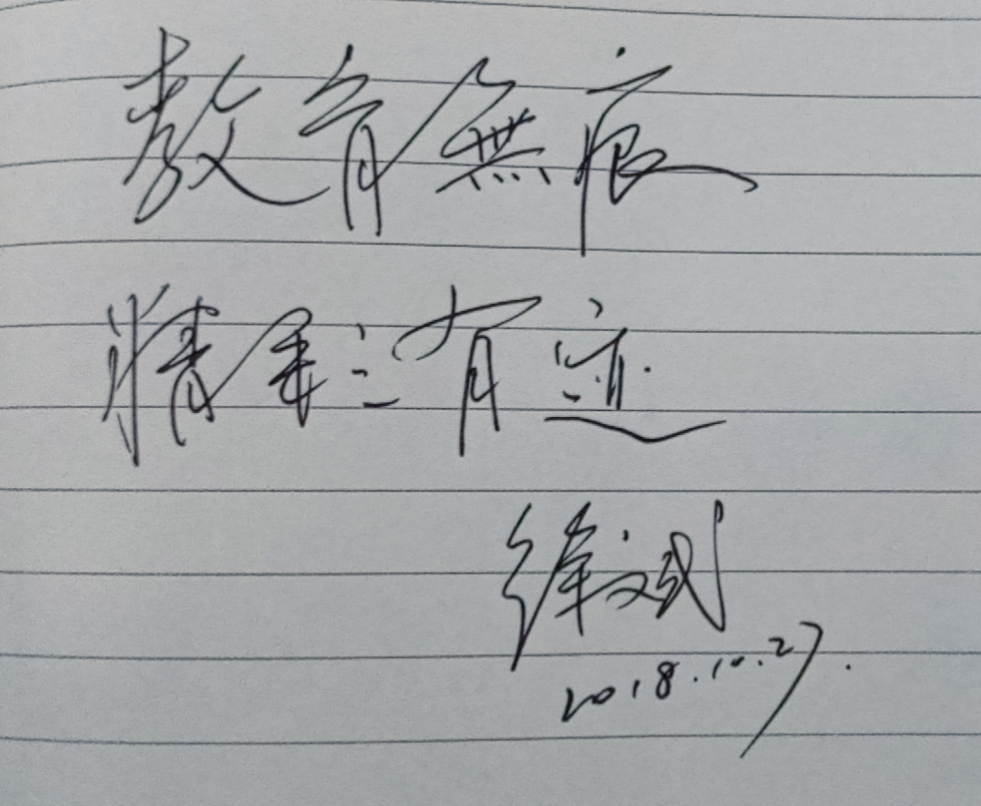 教育無痕
精彩有迹
徐斌
2018.10.27.